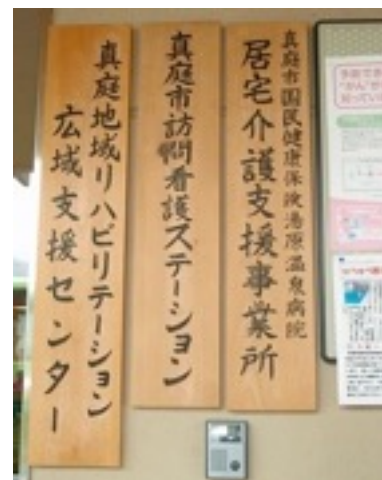 真庭市国民健康保険湯原温泉病院
居宅介護支援事業所
真庭市訪問看護ステーション
真庭地域リハビリテーション
広域支援センター